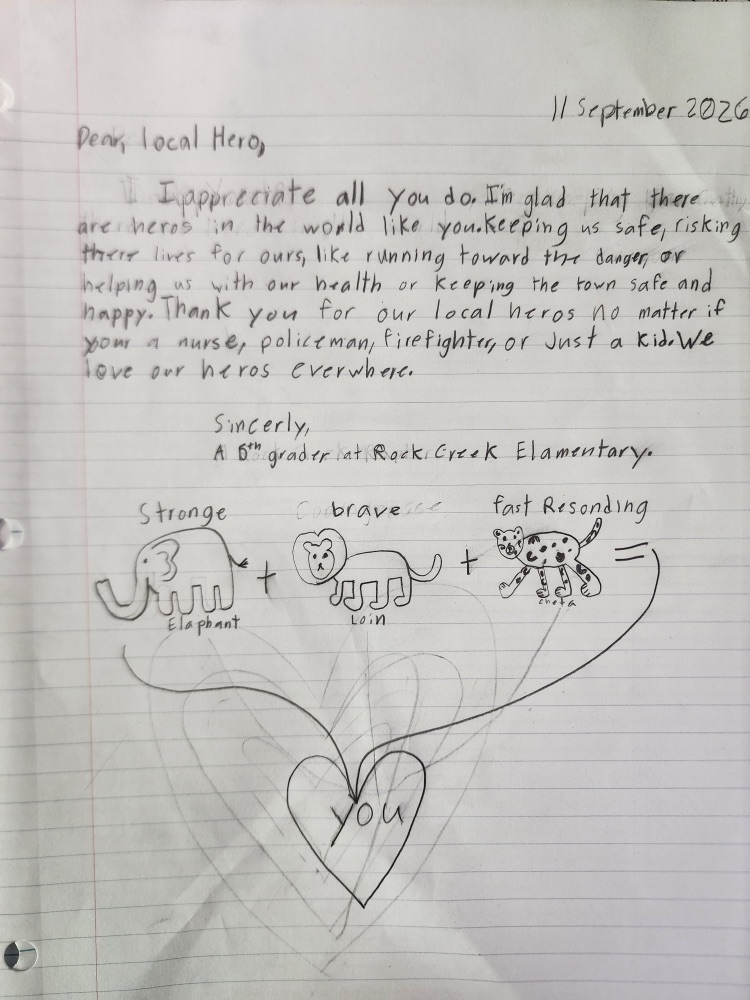 11 September 2026
Dear, local Hero,
I appreciate all you do. I'm glad that there
are heros in the world like you. Keeping us safe, risking
there lives for ours, like running toward the danger, or
helping us with our health or keeping the town safe and
happy. Thank you for our local heros no matter if
your a nurse, policeman, firefighter, or Just a kid. We
love our heros everwhere.
Sincerly,
A 5th grader at Rock Creek Elamentary.
Stronge brave fast Resonding
+ + =
Elaphant Loin cheta
you